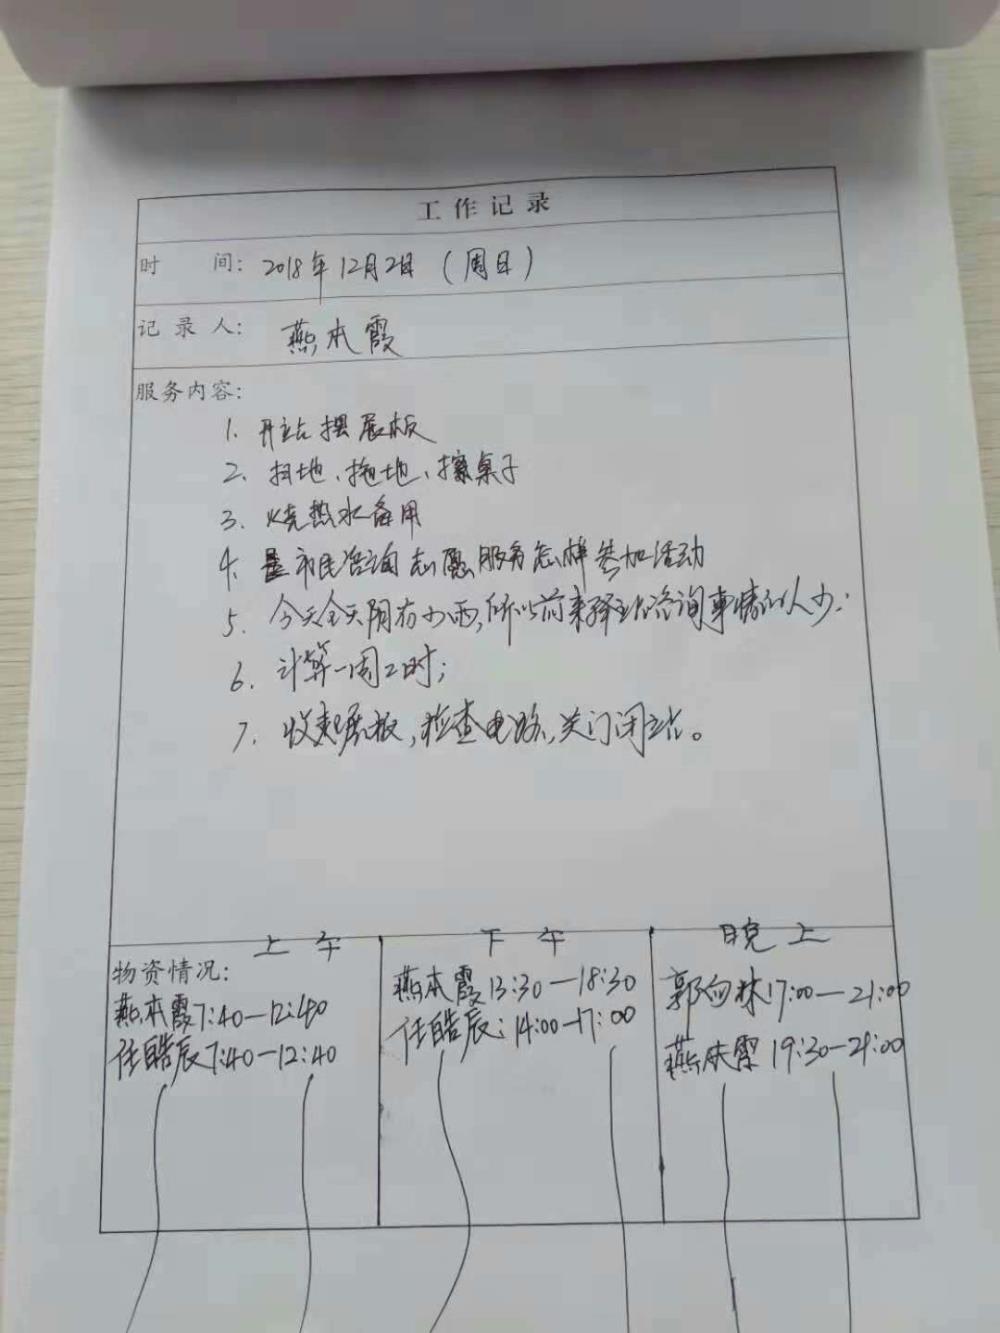 工作记录
时 间: 2018年12月2日 (周日)
记 录 人: 燕本霞
服务内容:
1. 开站摆展板
2. 扫地、拖地、擦桌子
3. 烧热水备用
4. 市民咨询志愿服务怎样参加活动
5. 今天全天阴有小雨,所以前来驿站咨询事情的人少;
6. 计算一周工时;
7. 收起展板,检查电路,关门闭站。
上午 下午 晚上
物资情况:
燕本霞7:40—12:40
任皓辰7:40—12:40
燕本霞13:30—18:30
任皓辰:14:00—17:00
郭向林17:00—21:00
燕本霞 19:30—21:00